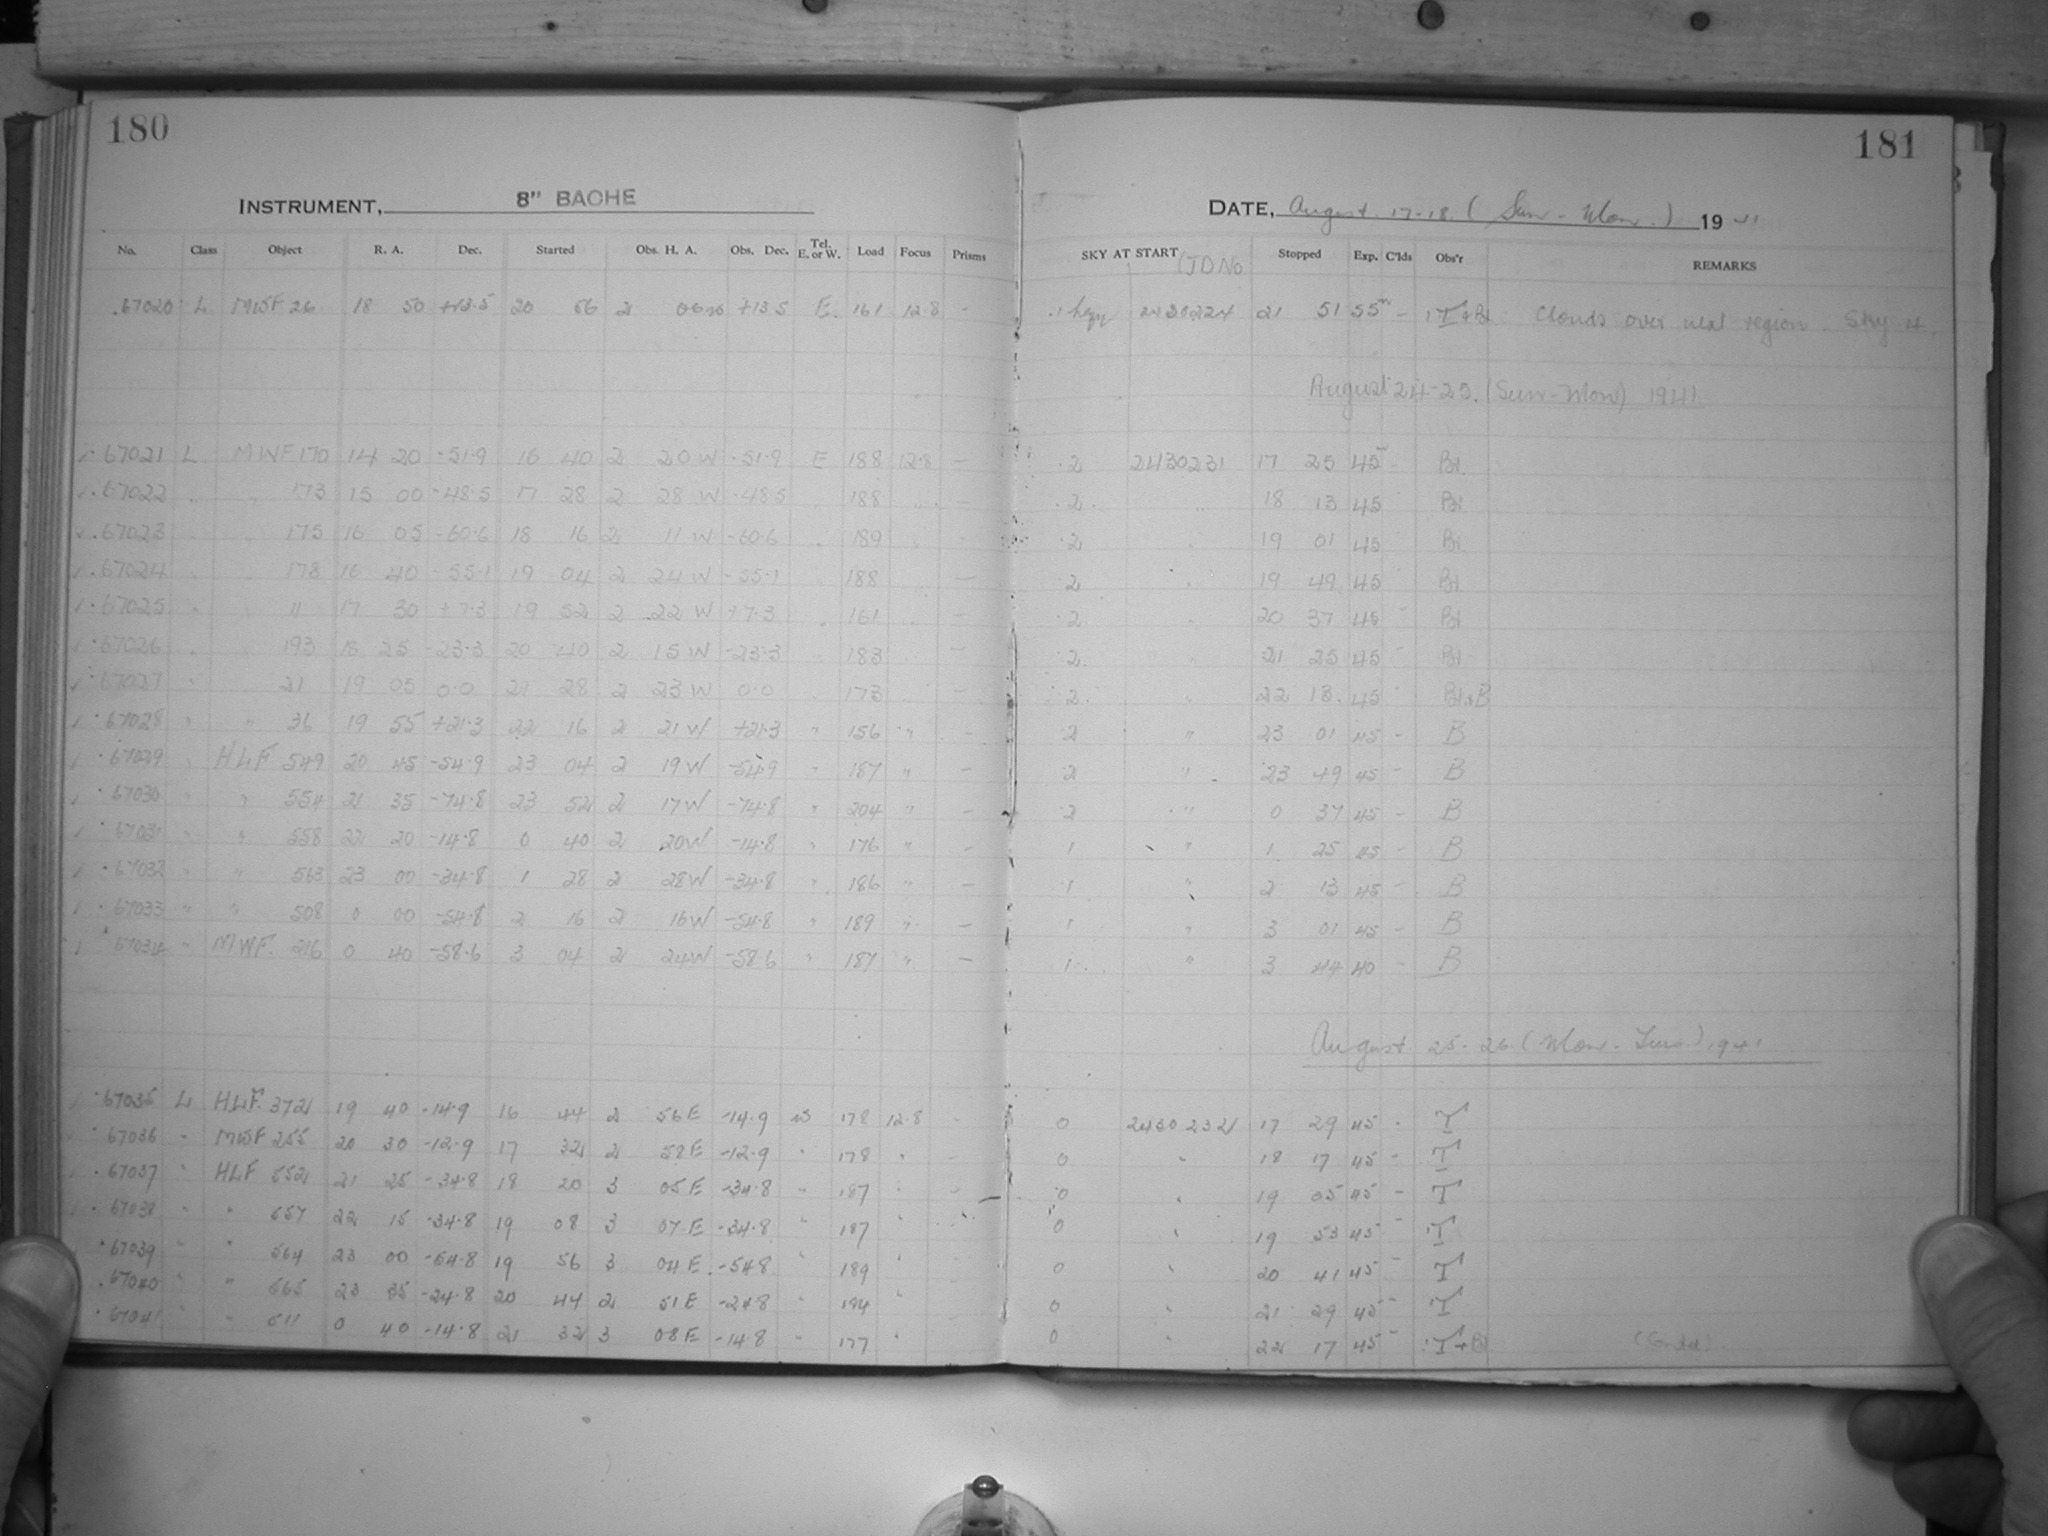 180
INSTRUMENT, 8" BACHE
No. Class Object R. A. Dec. Started Obs. H. A. Obs. Dec. Tel. E. or W. Load Focus Prisms
67020 L MWF 26 18 50 +13.5 20 56 2 06 w +13.5 E 161 12.8 -
67021 L MWF 170 14 20 -51.9 16 40 2 20 W -51.9 E 188 12.8 -
67022 " " 173 15 00 -48.5 17 28 2 28 W -48.5 188 " -
67023 175 16 05 -60.6 18 16 2 11 W -60.6 189
67024 178 16 40 -55.1 19 04 2 24 W -55.1 188 -
67025 11 17 30 +7.3 19 52 2 22 W +7.3 161 -
67026 193 18 25 -23.3 20 40 2 15 W -23.3 183 -
67027 21 19 05 0.0 21 28 2 23 W 0.0 173 -
67028 " " 36 19 55 +21.3 22 16 2 21 W +21.3 " 156 " -
67029 " HLF 549 20 45 -54.9 23 04 2 19 W -54.9 " 187 " -
67030 " " 554 21 35 -74.8 23 52 2 17 W -74.8 " 204 " -
67031 " " 558 22 20 -14.8 0 40 2 20 W -14.8 " 176 " -
67032 " " 563 23 00 -34.8 1 28 2 28 W -34.8 " 186 " -
67033 " " 508 0 00 -54.8 2 16 2 16 W -54.8 " 189 " -
67034 " MWF. 216 0 40 -58.6 3 04 2 24 W -58.6 " 187 " -
67035 L HLF. 3721 19 40 -14.9 16 44 2 56 E -14.9 W 178 12.8 -
67036 " MWF 255 20 30 -12.9 17 32 2 58 E -12.9 " 178 " -
67037 " HLF 552 21 25 -34.8 18 20 3 05 E -34.8 " 187 " -
67038 " " 557 22 15 -34.8 19 08 3 07 E -34.8 " 187 "
67039 " " 564 23 00 -54.8 19 56 3 04 E -54.8 189 "
67040 " " 565 23 35 -24.8 20 44 2 51 E -24.8 " 184 "
67041 " " 511 0 40 -14.8 21 32 3 08 E -14.8 " 177 "
181
DATE, August 17-18 (Sun - Mon.) 1941
SKY AT START (JD No Stopped Exp. C'lds Obs'r REMARKS
1 hzy 2430224 21 51 55m - T+Bl Clouds over next region. Sky 4.
August 24-25. (Sun-Mon) 1941
2 2430231 17 25 45 - Bl.
2 " 18 13 45 Bl
2 " 19 01 45 Bl.
2 " 19 49 45 Bl.
2 " 20 37 45 - Bl
2 " 21 25 45 - Bl
2 " 22 13 45 - Bl+B
2 " 23 01 45 - B
2 " 23 49 45 - B
2 " 0 37 45 - B
1 " 1 25 45 - B
1 " 2 13 45 - B
1 " 3 01 45 - B
1 " 3 44 40 - B
August 25-26 (Mon - Tues) 1941
0 2430232 17 29 45 - T
0 " 18 17 45 - T
0 " 19 05 45 - T
0 " 19 53 45 - T
0 " 20 41 45 - T
0 " 21 29 45 - T
0 " 22 17 45 - T+Bl (Contd)